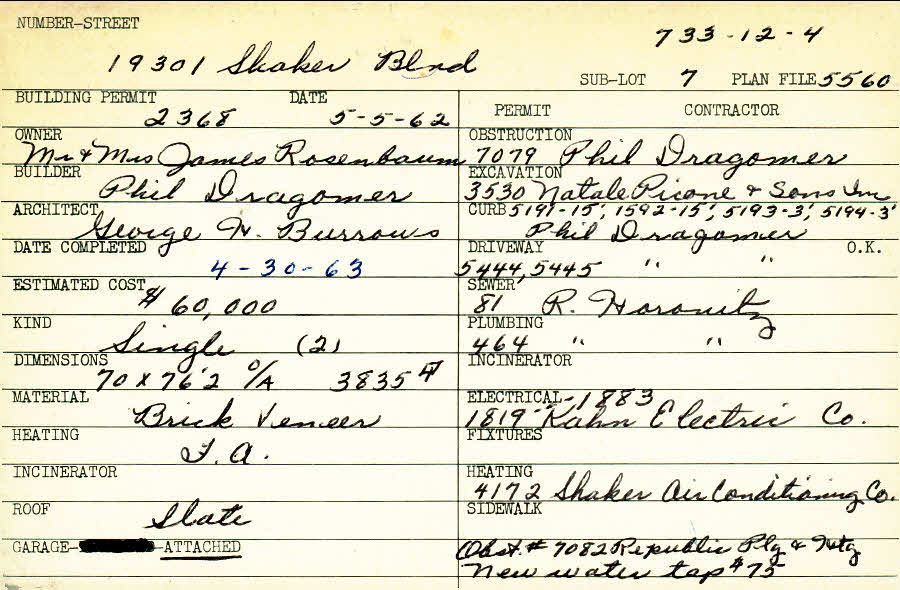 NUMBER-STREET
733-12-4
19301 Shaker Blvd
SUB-LOT 7 PLAN FILE 5560
BUILDING PERMIT DATE
2368 5-5-62
OWNER
Mr & Mrs James Rosenbaum
BUILDER
Phil Dragomer
ARCHITECT
George H. Burrows
DATE COMPLETED
4-30-63
ESTIMATED COST
$60,000
KIND
Single (2)
DIMENSIONS
70 x 76'2 O/A 3835
MATERIAL
Brick Veneer
HEATING
F.A.
INCINERATOR
ROOF
Slate
GARAGE- ATTACHED
PERMIT CONTRACTOR
OBSTRUCTION
7079 Phil Dragomer
EXCAVATION
3530 Natale Picone & Sons Inc
CURB 5191-15', 1592-15', 5193-3', 5194-3'
Phil Dragomer
DRIVEWAY O.K.
5444, 5445 " "
SEWER
81 R. Horonitz
PLUMBING
464 " "
INCINERATOR
ELECTRICAL -1883
1819 Kahn Electric Co.
FIXTURES
HEATING
4172 Shaker Air Conditioning Co.
SIDEWALK
Obst. # 7082 Republic Plg & Htg
New water tap $75